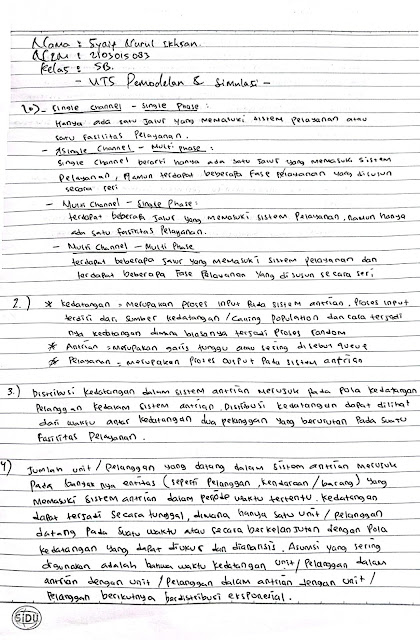 Nama : Syaif Nurul Ikhsan.
NIM : 2103015083
Kelas : 5B.
- UTS Pemodelan & Simulasi -
1.) - Single Channel - Single Phase :
Hanya ada satu Jalur yang memasuki sistem pelayanan atau
satu fasilitas Pelayanan.
- Single Channel - Multi phase :
Single Channel berarti hanya ada satu Jalur yang memasuki sistem
pelayanan, Namun terdapat beberapa Fase pelayanan yang disusun
secara seri
- Multi Channel - Single Phase :
terdapat beberapa Jalur yang memasuki sistem Pelayanan, namun hanya
ada satu fasilitas Pelayanan.
- Multi Channel - Multi Phase
terdapat beberapa Jalur yang memasuki sistem pelayanan dan
terdapat beberapa Fase Pelayanan yang disusun secara seri
2.) * Kedatangan = Merupakan proses input Pada sistem antrian. Proses input
terdiri dari sumber kedatangan / Calling population dan cara terjadi
nya kedatangan dimana biasanya terjadi Proses random
* Antrian = Merupakan garis tunggu atau sering disebut queue
* Pelayanan = merupakan Proses output Pada sistem antrian
3.) Distribusi kedatangan dalam sistem antrian merujuk pada pola kedatangan
Pelanggan kedalam sistem antrian. Distribusi kedatangan dapat dilihat
dari waktu antar kedatangan dua pelanggan yang berurutan Pada suatu
Fasilitas Pelayanan.
4) Jumlah unit / Pelanggan yang datang dalam sistem antrian merujuk
Pada banyak nya entitas (seperti Pelanggan, kendaraan / barang) yang
Memasuki sistem antrian dalam waktu tertentu. Kedatangan
dapat terjadi secara tunggal, dimana hanya satu unit / Pelanggan
datang Pada suatu waktu atau secara berkelanjutan dengan Pola
kedatangan yang dapat diukur dan dianalisis. Asumsi yang sering
digunakan adalah bahwa waktu kedatangan unit / Pelanggan dalam
antrian dengan unit / Pelanggan dalam antrian dengan unit /
Pelanggan berikutnya berdistribusi eksponensial.
SIDU